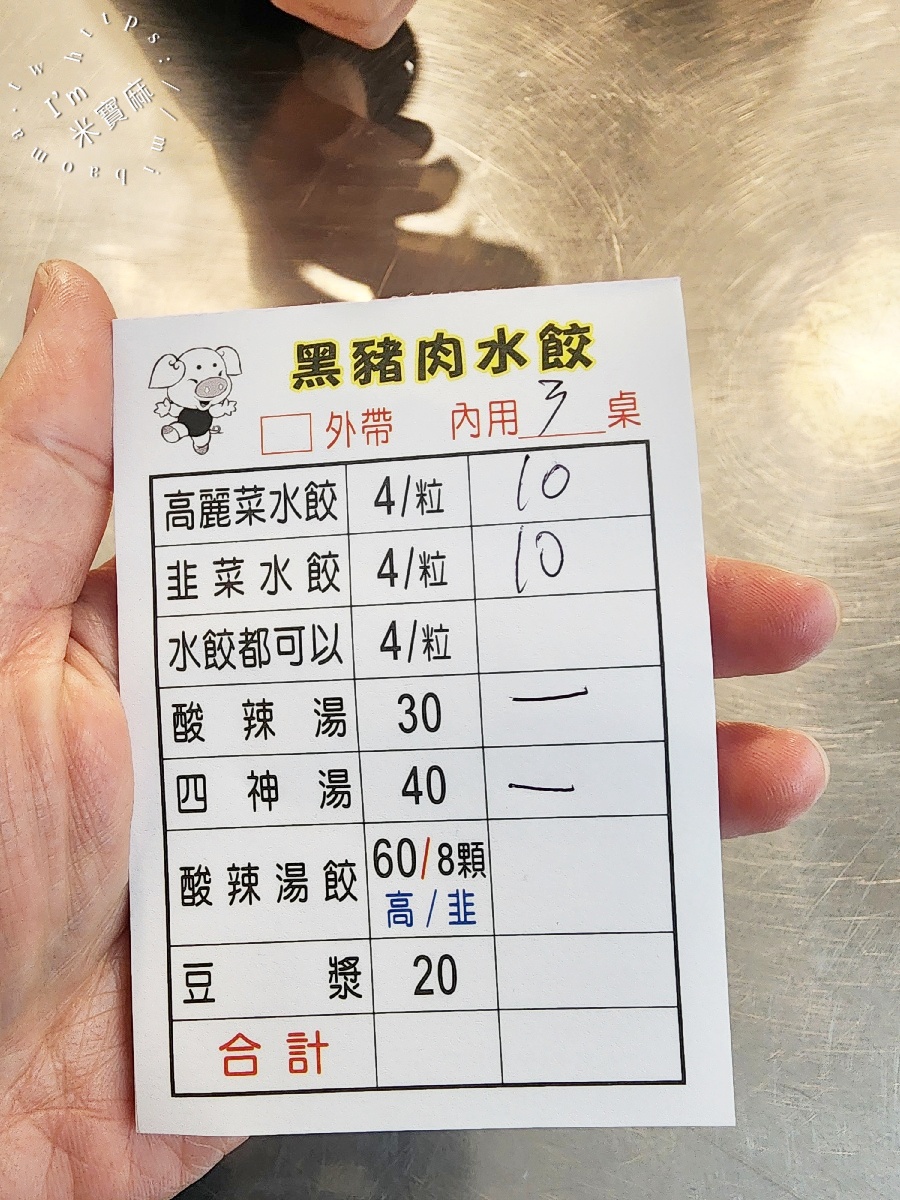 I'm
米寶麻
https://mibaoma.tw
黑豬肉水餃
外帶 內用 3 桌
高麗菜水餃 4/粒 10
韭菜水餃 4/粒 10
水餃都可以 4/粒
酸辣湯 30 一
四神湯 40 一
酸辣湯餃 60/8顆
高/韭
豆漿 20
合計